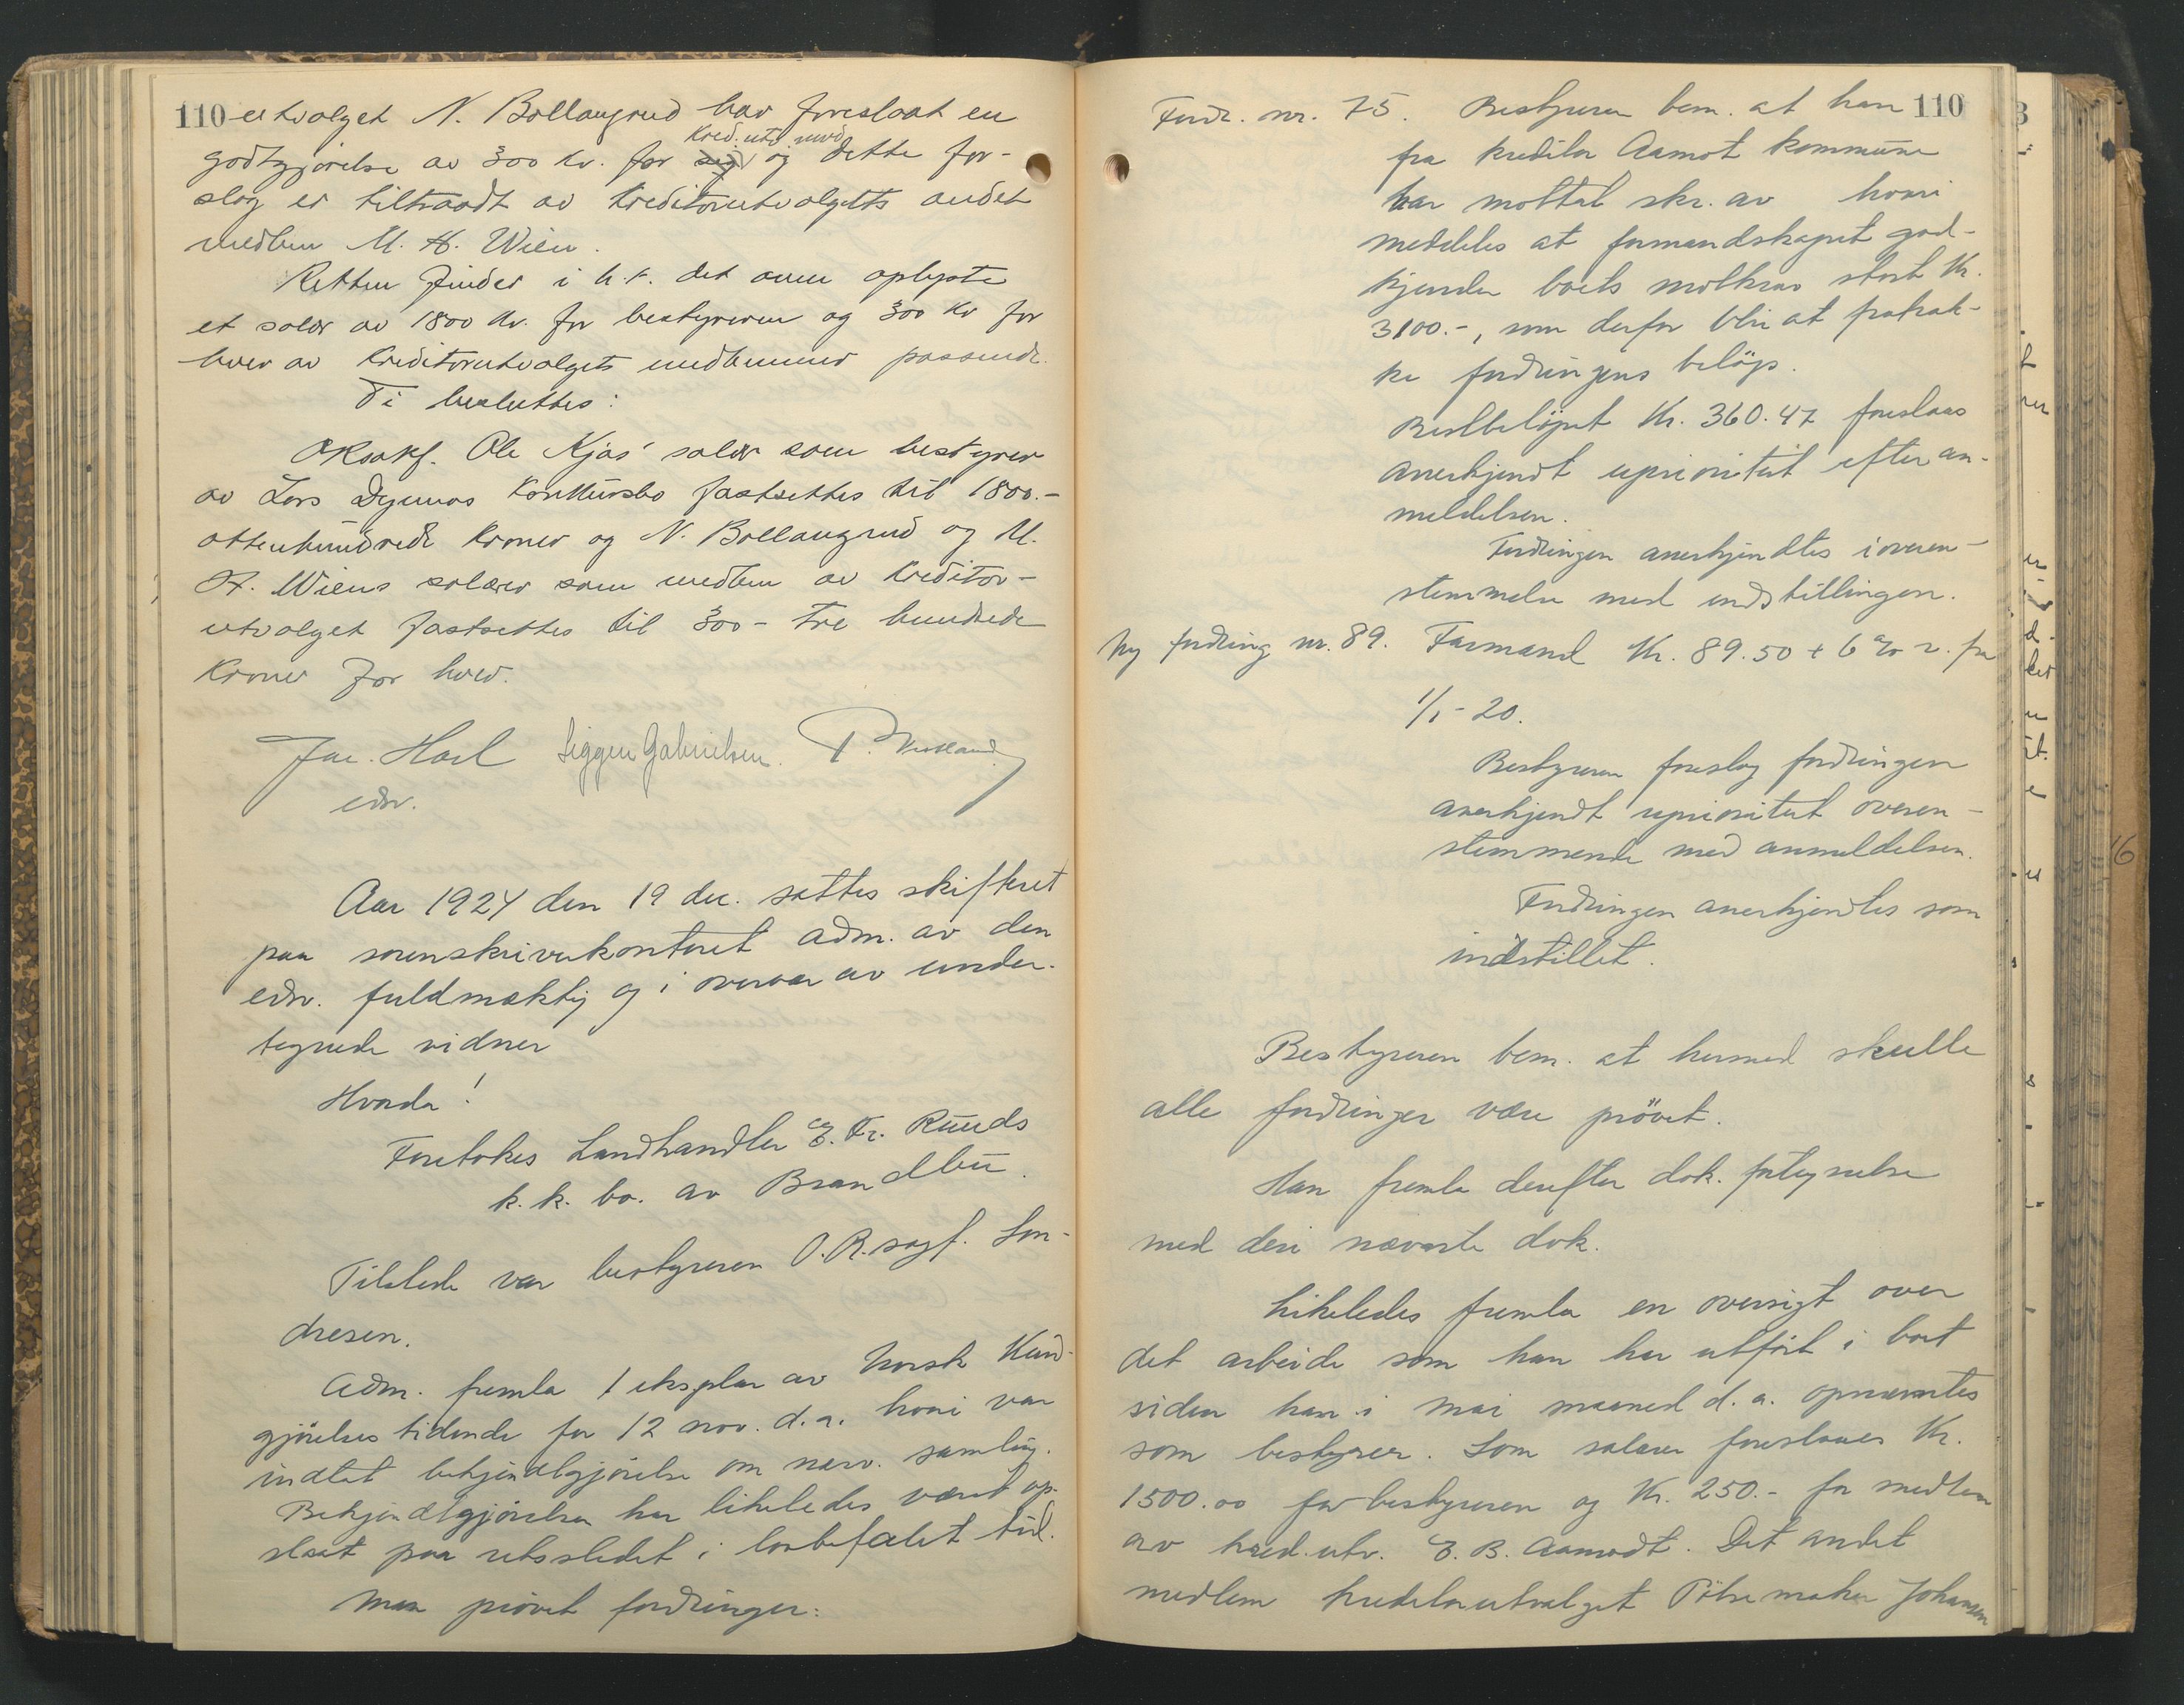 110 utvalget N. Bollangrud har foreslaat en
godtgjørelse av 300 kr. for kred. utv. medl. og dette for-
slag er tiltraadt av kreditorutvalgets andet
medlem M. H. Wien.
Retten finder i h.t. det oven oplyste
et salær av 1800 kr. for bestyreren og 300 kr for
hver av kreditorutvalgets medlemmer passende.
Ti besluttes:
O.R.sakf. Ole Kjos' salær som bestyrer
av Lars Dynnas konkursbo fastsettes til 1800.-
attenhundrede kroner og N. Bollangrud og M.
H. Wiens salærer som medlem av kreditor-
utvalget fastsettes til 300 - tre hundrede
kroner for hver.
Jac. Hoel Siggen Gabrielsen. P.
edsv.
Aar 1924 den 19 dec. sattes skifteret
paa sorenskriverkontoret adm. av den
edsv. fuldmæktig og i overvær av under-
tegnede vidner
Hvorda!
Foretokes Landhandler E. Fr. Ruuds
k.k. bo. av Brandbu.
Tilstede var bestyreren O.R.sagf. Son-
dresen.
Adm. fremla 1 eksplar av Norsk Kund-
gjörelses tidende for 12 nov. d.a. hvori var
indtat bekjendtgjörelse om nærv. samling.
Bekjendtgjörelsen har likeledes været op-
slaat paa retsstedet i lovbefalet tid.
Man prövet fordringer:
Fordr. nr. 75. Bestyreren bem. at han 110
fra kreditor Aamot kommune
har mottat skr. av hvori
meddeles at formandskapet god-
kjender boets motkrav stort Kr.
3100.-, som derfor blir at fratræk-
ke fordringens belöp.
Restbelöpet Kr. 360.47 foreslaas
anerkjendt uprioritert efter an-
meldelsen.
Fordringen anerkjendtes i overen-
stemmelse med indstillingen.
Ny fordring nr. 89. Farmand Kr. 89.50 + 6% r. fra
1/1-20.
Bestyreren foreslog fordringen
anerkjendt uprioritert overen-
stemmende med anmeldelsen.
Fordringen anerkjendtes som
indstillet.
Bestyreren bem. at hermed skulle
alle fordringer være prövet.
Han fremla derefter dok. fortegnelse
med deri nævnte dok.
Likeledes fremla en oversigt over
det arbeide som han har utfört i boet
siden han i mai maaned d.a. opnævntes
som bestyrer. Som salær foreslaaes Kr.
1500.00 for bestyreren og Kr. 250.- for medlem
av kred.utv. E. B. Aamodt. Det andet
medlem kreditorutvalget Pölsemaker Johansen